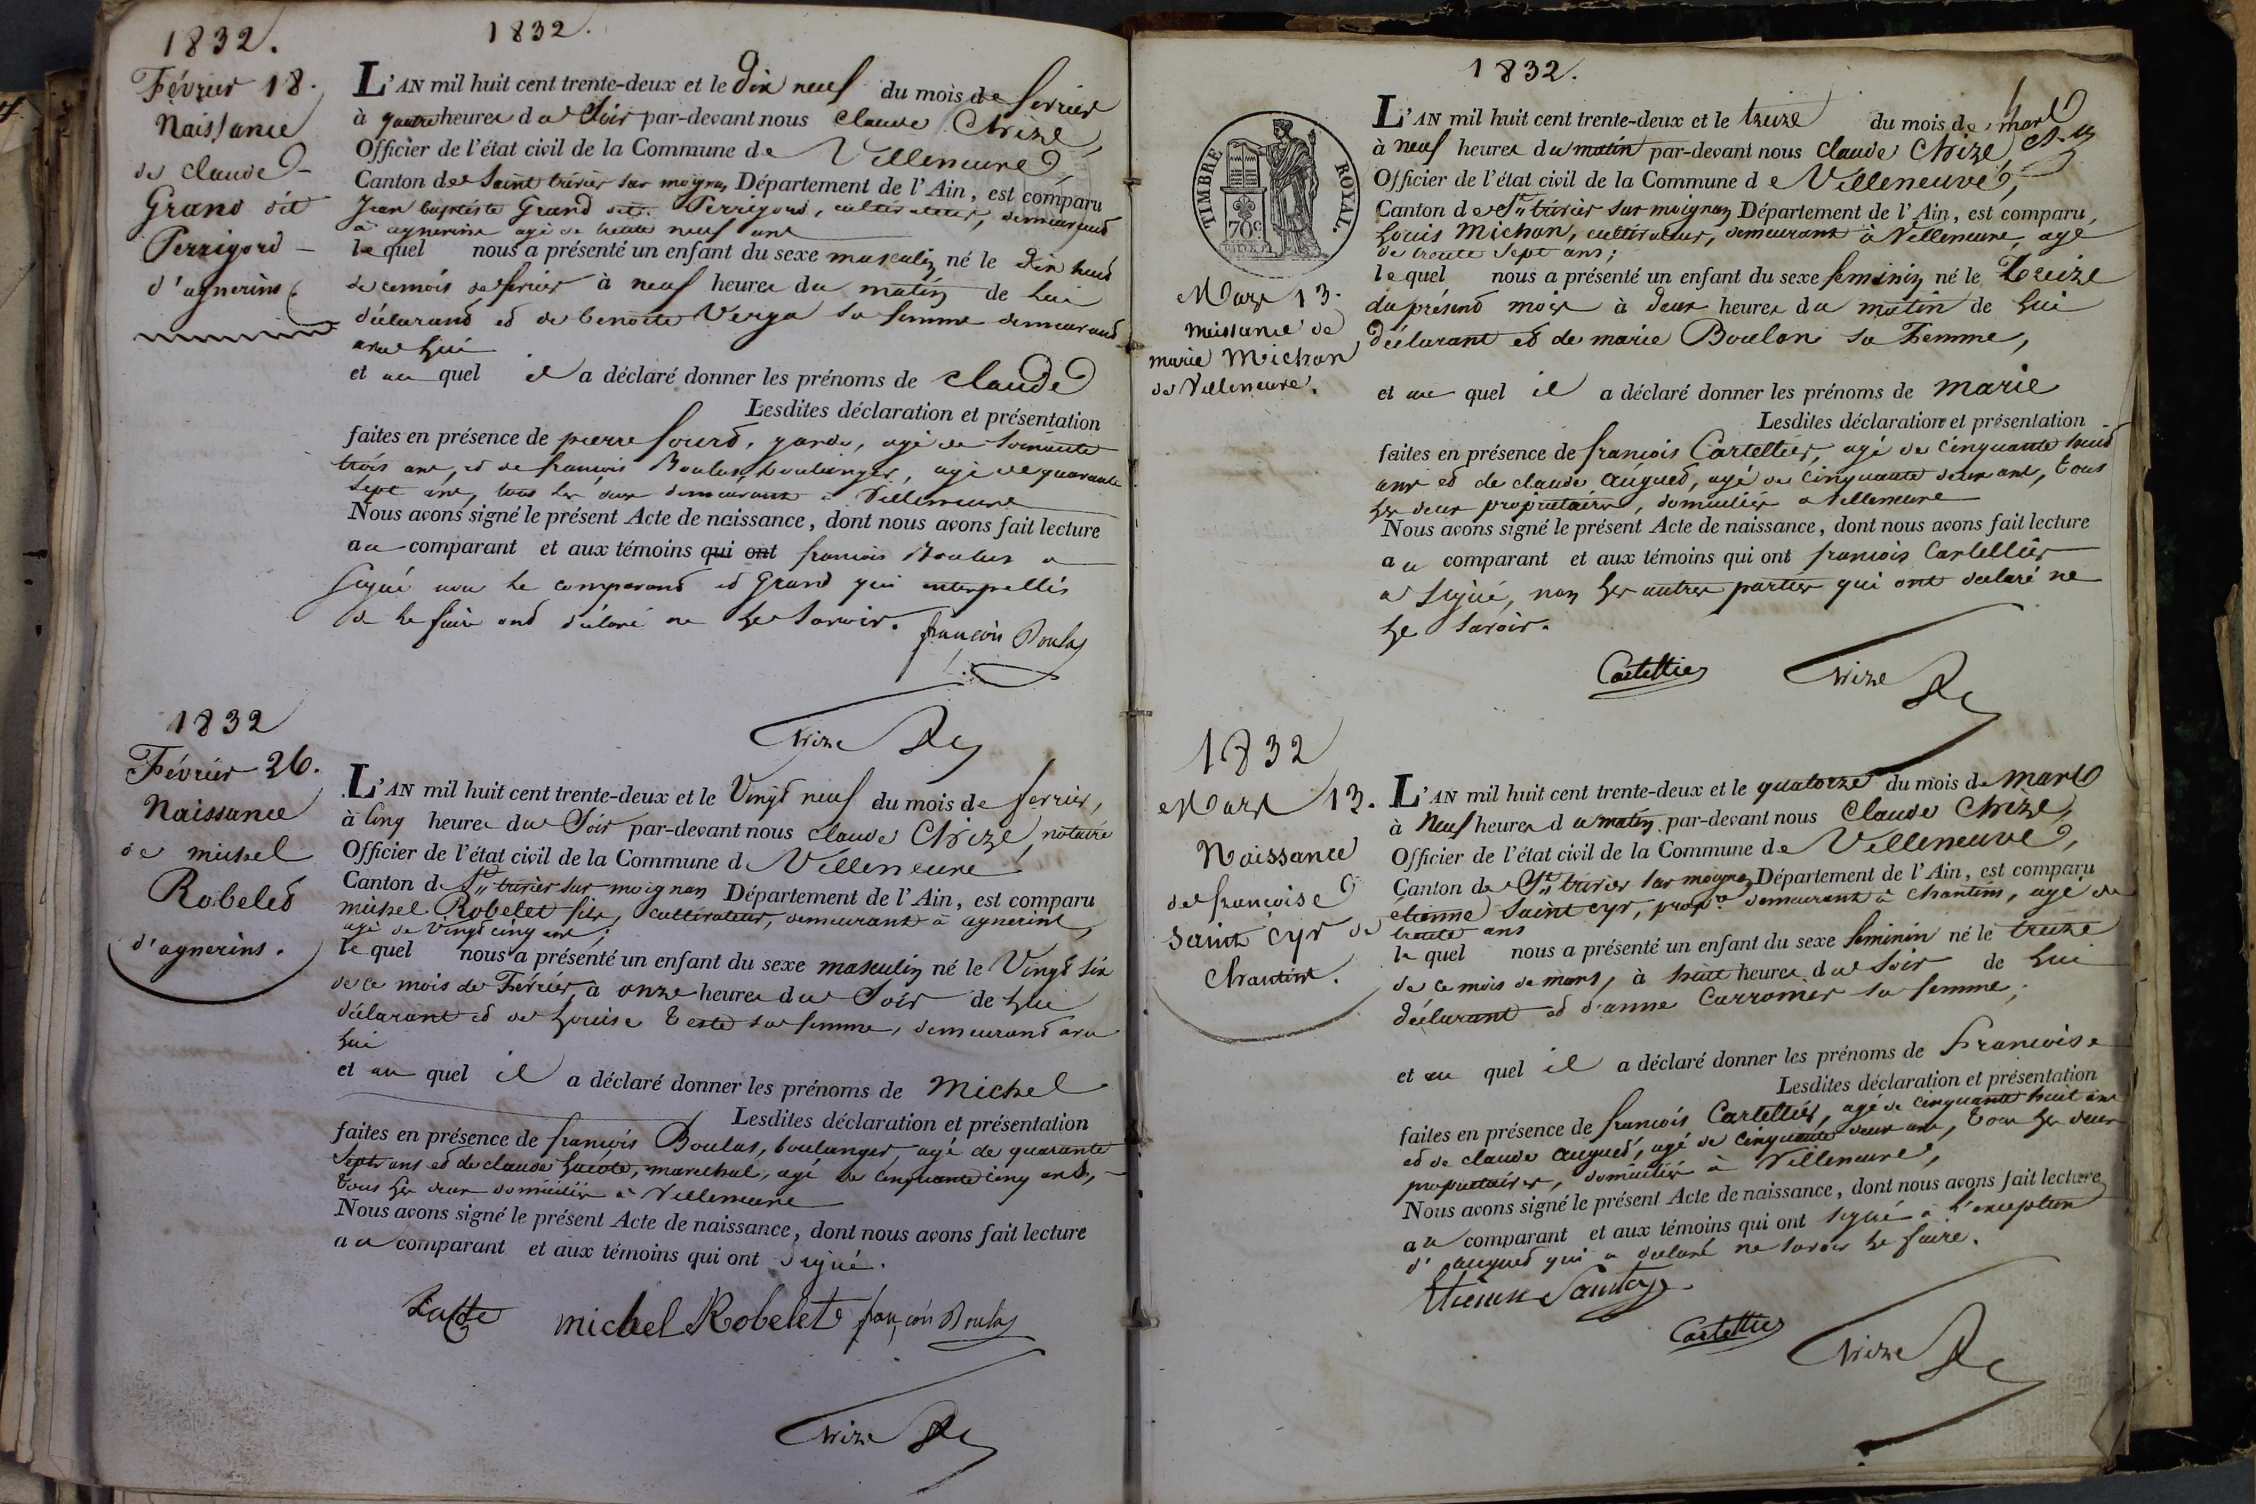 1832.
1832.
Février 18.
Naissance
de claude
Grand dit
Perrigord
d'agnerins
L'AN mil huit cent trente-deux et le Dix neuf du mois de fevrier
à quatre heures du Soir par-devant nous Claude Chize,
Officier de l'état civil de la Commune de Villeneuve,
Canton de Saint trivier sur moignan Département de l'Ain, est comparu
Jean baptiste Grand dit Perrigord, cultivateur, demeurand
à agnerins agé de trente neuf ans
lequel nous a présenté un enfant du sexe masculin né le Dix huit
de ce mois de fevrier à neuf heures du matin de Lui
déclarand et de benoite Verga sa femme demeurand
avec Lui
et au quel il a déclaré donner les prénoms de Claude
Lesdites déclaration et présentation
faites en présence de pierre , garde, agé de Soixante
trois ans, et de francois Boulas, boulanger, agé de quarante
Sept ans, tous les deux demeurant à Villeneuve
Nous avons signé le présent Acte de naissance, dont nous avons fait lecture
au comparant et aux témoins qui ont francois Boulas a
Signé non le comparand et Grand qui interpellés
de le faire ont déclaré ne le Savoir.
françois Boulas
Chize
1832
Février 26.
Naissance
de michel
Robeled
d'agnerins.
L'AN mil huit cent trente-deux et le Vingt neuf du mois de fevrier,
à Cinq heures du Soir par-devant nous Claude Chize, notaire
Officier de l'état civil de la Commune de Villeneuve
Canton de St trivier sur moignan Département de l'Ain, est comparu
michel Robelet fils, cultivateur, demeurant à agnerins,
agé de Vingt cinq ans;
lequel nous a présenté un enfant du sexe masculin né le Vingt Six
de ce mois de Février à onze heures du Soir de Lui
déclarant et de Louise Teste sa femme, demeurand avec
Lui
et au quel il a déclaré donner les prénoms de Michel
Lesdites déclaration et présentation
faites en présence de francois Boulas, boulanger, agé de quarante
Sept ans et de claude Lacote, marechal, agé de cinquante cinq ans,
tous les deux domiciliés à Villeneuve
Nous avons signé le présent Acte de naissance, dont nous avons fait lecture
au comparant et aux témoins qui ont Signé.
Lacote michel Robelet françois Boulas
Chize
1832.
TIMBRE ROYAL.
70c
Mars 13.
Naissance de
marie Michon
de Villeneuve.
L'AN mil huit cent trente-deux et le treize du mois de mars
à neuf heures du matin par-devant nous Claude Chize,
Officier de l'état civil de la Commune de Villeneuve,
Canton de St trivier sur moignan Département de l'Ain, est comparu,
Louis Michon, cultivateur, demeurant à Villeneuve, agé
de trente Sept ans;
lequel nous a présenté un enfant du sexe feminin né le Treize
du présend mois à deux heures du matin de Lui
Déclarant et de marie Boulon sa Femme,
et au quel il a déclaré donner les prénoms de Marie
Lesdites déclaration et présentation
faites en présence de francois Cartellier, agé de cinquante huit
ans et de claude augued, agé de cinquante deux ans, tous
les deux propriétaires, domiciliés à Villeneuve
Nous avons signé le présent Acte de naissance, dont nous avons fait lecture
au comparant et aux témoins qui ont francois Cartellier
a Signé, non les autres parties qui ont déclaré ne
le Savoir.
Cartellier Chize
1832
Mars 13.
Naissance
de françoise
Saint Cyr de
Chantins.
L'AN mil huit cent trente-deux et le quatorze du mois de Mars
à Neuf heures du matin par-devant nous Claude Chize,
Officier de l'état civil de la Commune de Villeneuve,
Canton de St trivier sur moignan Département de l'Ain, est comparu
étienne Saint Cyr, propre demeurant à Chantins, agé de
trente ans
lequel nous a présenté un enfant du sexe feminin né le treize
de ce mois de mars, à huit heures du Soir de Lui
déclarant et d'anne Carromier sa femme;
et au quel il a déclaré donner les prénoms de Francoise
Lesdites déclaration et présentation
faites en présence de francois Cartellier, agé de cinquante huit ans
et de claude augued, agé de cinquante deux ans, tous les deux
propriétaires, domiciliés à Villeneuve,
Nous avons signé le présent Acte de naissance, dont nous avons fait lecture
au comparant et aux témoins qui ont signé à l'exception
d'augued qui a déclaré ne Savoir le faire.
Etienne Saintcyr
Cartellier
Chize